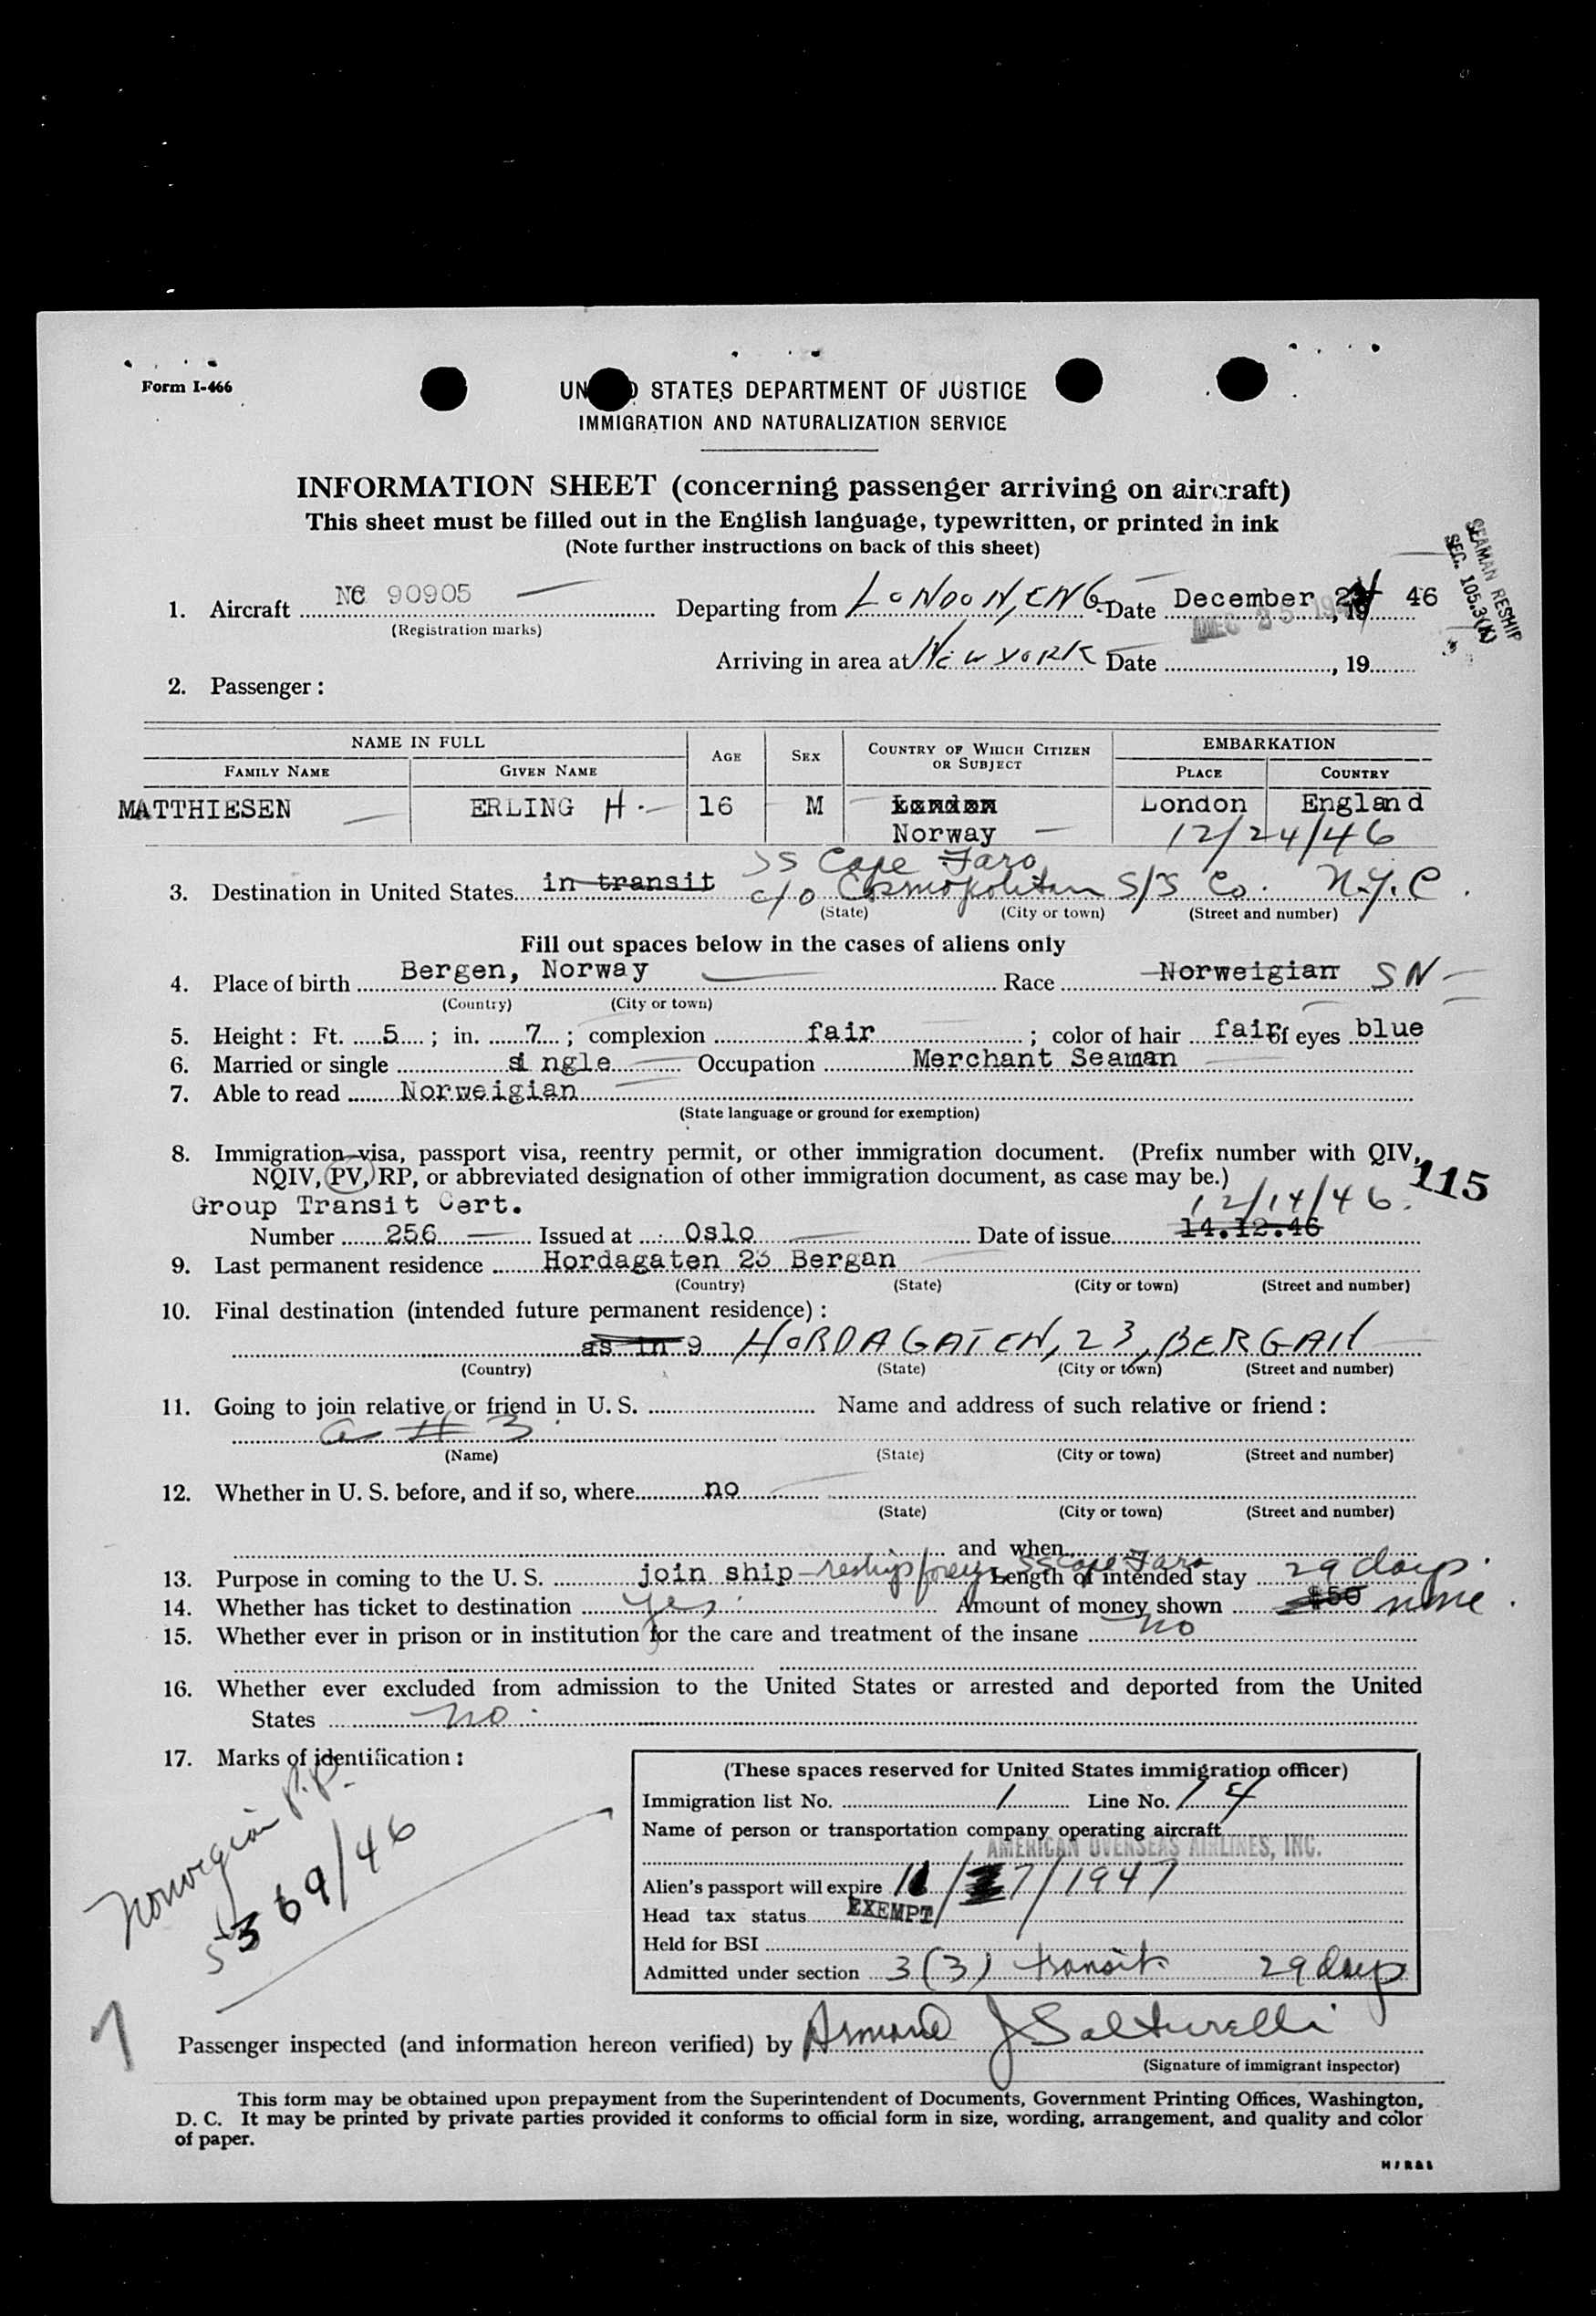 Form I-466
UNITED STATES DEPARTMENT OF JUSTICE
IMMIGRATION AND NATURALIZATION SERVICE
INFORMATION SHEET (concerning passenger arriving on aircraft)
This sheet must be filled out in the English language, typewritten, or printed in ink
(Note further instructions on back of this sheet)
SEAMAN RESHIP
SEC. 105.3(K)
1. Aircraft NC 90905 Departing from LONDON, ENG. Date December 24, 19 46
(Registration marks)
DEC 25 194
Arriving in area at New YORK Date , 19
2. Passenger:
NAME IN FULL AGE SEX COUNTRY OF WHICH CITIZEN OR SUBJECT EMBARKATION
FAMILY NAME GIVEN NAME PLACE COUNTRY
MATTHIESEN ERLING H. 16 M London London England
Norway 12/24/46
SS Cape Faro
3. Destination in United States in transit c/o Cosmopolitan S/S Co. N.Y.C.
(State) (City or town) (Street and number)
Fill out spaces below in the cases of aliens only
4. Place of birth Bergen, Norway Race Norweigian SN
(Country) (City or town)
5. Height: Ft. 5; in. 7; complexion fair; color of hair fair of eyes blue
6. Married or single single Occupation Merchant Seaman
7. Able to read Norweigian
(State language or ground for exemption)
8. Immigration visa, passport visa, reentry permit, or other immigration document. (Prefix number with QIV,
NQIV, PV, RP, or abbreviated designation of other immigration document, as case may be.) 115
Group Transit Cert. 12/14/46.
Number 256 Issued at Oslo Date of issue 14.12.46
9. Last permanent residence Hordagaten 23 Bergan
(Country) (State) (City or town) (Street and number)
10. Final destination (intended future permanent residence):
as in 9 HORDAGATEN, 23, BERGAN
(Country) (State) (City or town) (Street and number)
11. Going to join relative or friend in U. S. Name and address of such relative or friend:
a # 3
(Name) (State) (City or town) (Street and number)
12. Whether in U. S. before, and if so, where no
(State) (City or town) (Street and number)
and when
13. Purpose in coming to the U. S. join ship - reship foreign SS Cape Faro Length of intended stay 29 days.
14. Whether has ticket to destination yes Amount of money shown $50 none.
15. Whether ever in prison or in institution for the care and treatment of the insane no
16. Whether ever excluded from admission to the United States or arrested and deported from the United
States no
17. Marks of identification:
Norwegian P.P.
5369/46
7
(These spaces reserved for United States immigration officer)
Immigration list No. 1 Line No. 14
Name of person or transportation company operating aircraft
AMERICAN OVERSEAS AIRLINES, INC.
Alien's passport will expire /7/1947
Head tax status EXEMPT
Held for BSI
Admitted under section 3(3) transit 29 days
Passenger inspected (and information hereon verified) by Armand J Salturelli
(Signature of immigrant inspector)
This form may be obtained upon prepayment from the Superintendent of Documents, Government Printing Offices, Washington,
D. C. It may be printed by private parties provided it conforms to official form in size, wording, arrangement, and quality and color
of paper.